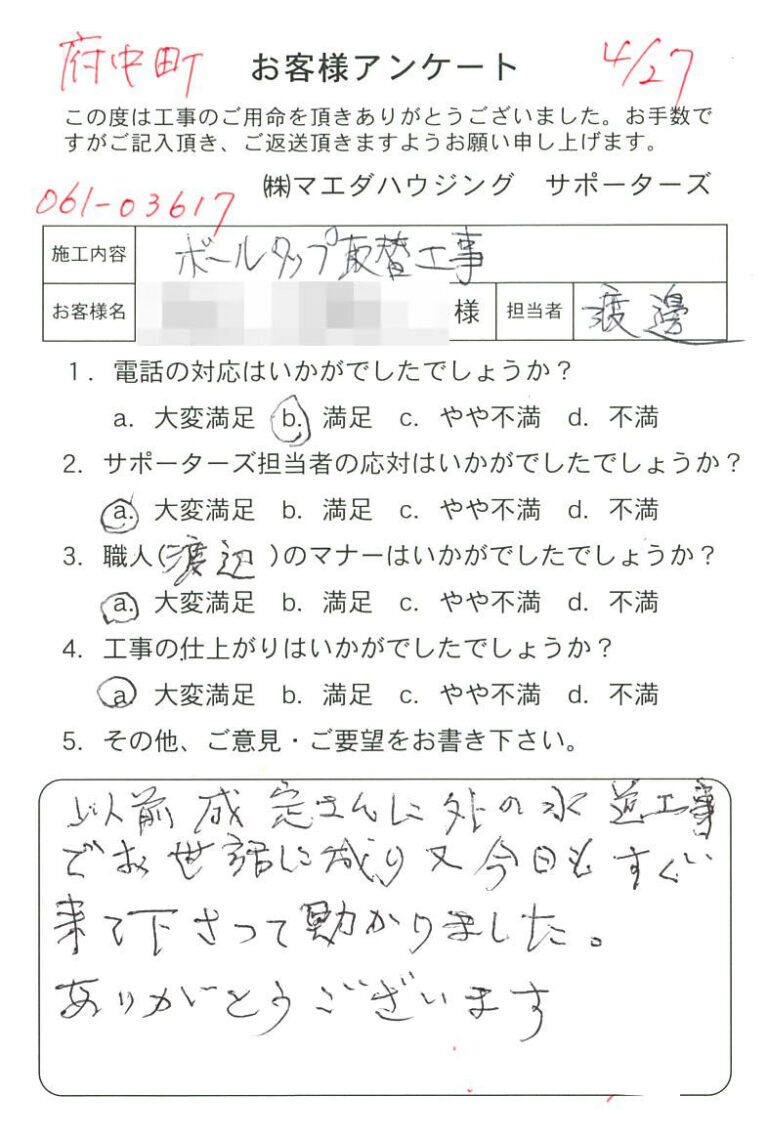 府中町 お客様アンケート 4/27
この度は工事のご用命を頂きありがとうございました。お手数で
すがご記入頂き、ご返送頂きますようお願い申し上げます。
㈱マエダハウジング サポーターズ
061-03617
施工内容 ボールタップ取替工事
お客様名 様 担当者 渡邊
1. 電話の対応はいかがでしたでしょうか？
a. 大変満足 b. 満足 c. やや不満 d. 不満
2. サポーターズ担当者の応対はいかがでしたでしょうか？
a. 大変満足 b. 満足 c. やや不満 d. 不満
3. 職人(渡辺)のマナーはいかがでしたでしょうか？
a. 大変満足 b. 満足 c. やや不満 d. 不満
4. 工事の仕上がりはいかがでしたでしょうか？
a 大変満足 b. 満足 c. やや不満 d. 不満
5. その他、ご意見・ご要望をお書き下さい。
以前成定さんに外の水道工事
でお世話に成り又今日もすぐい
来て下さって助かりました。
ありがとうございます